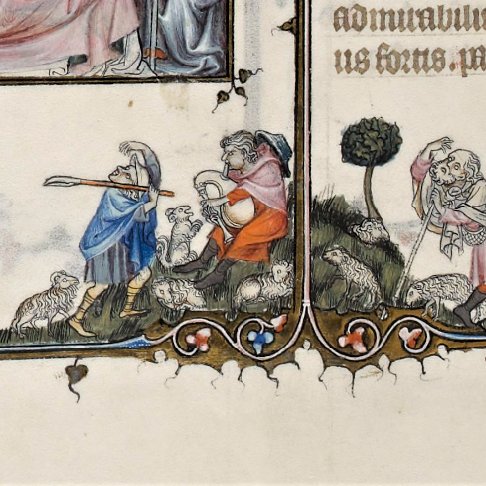 admirabiliu
us fortis. pa